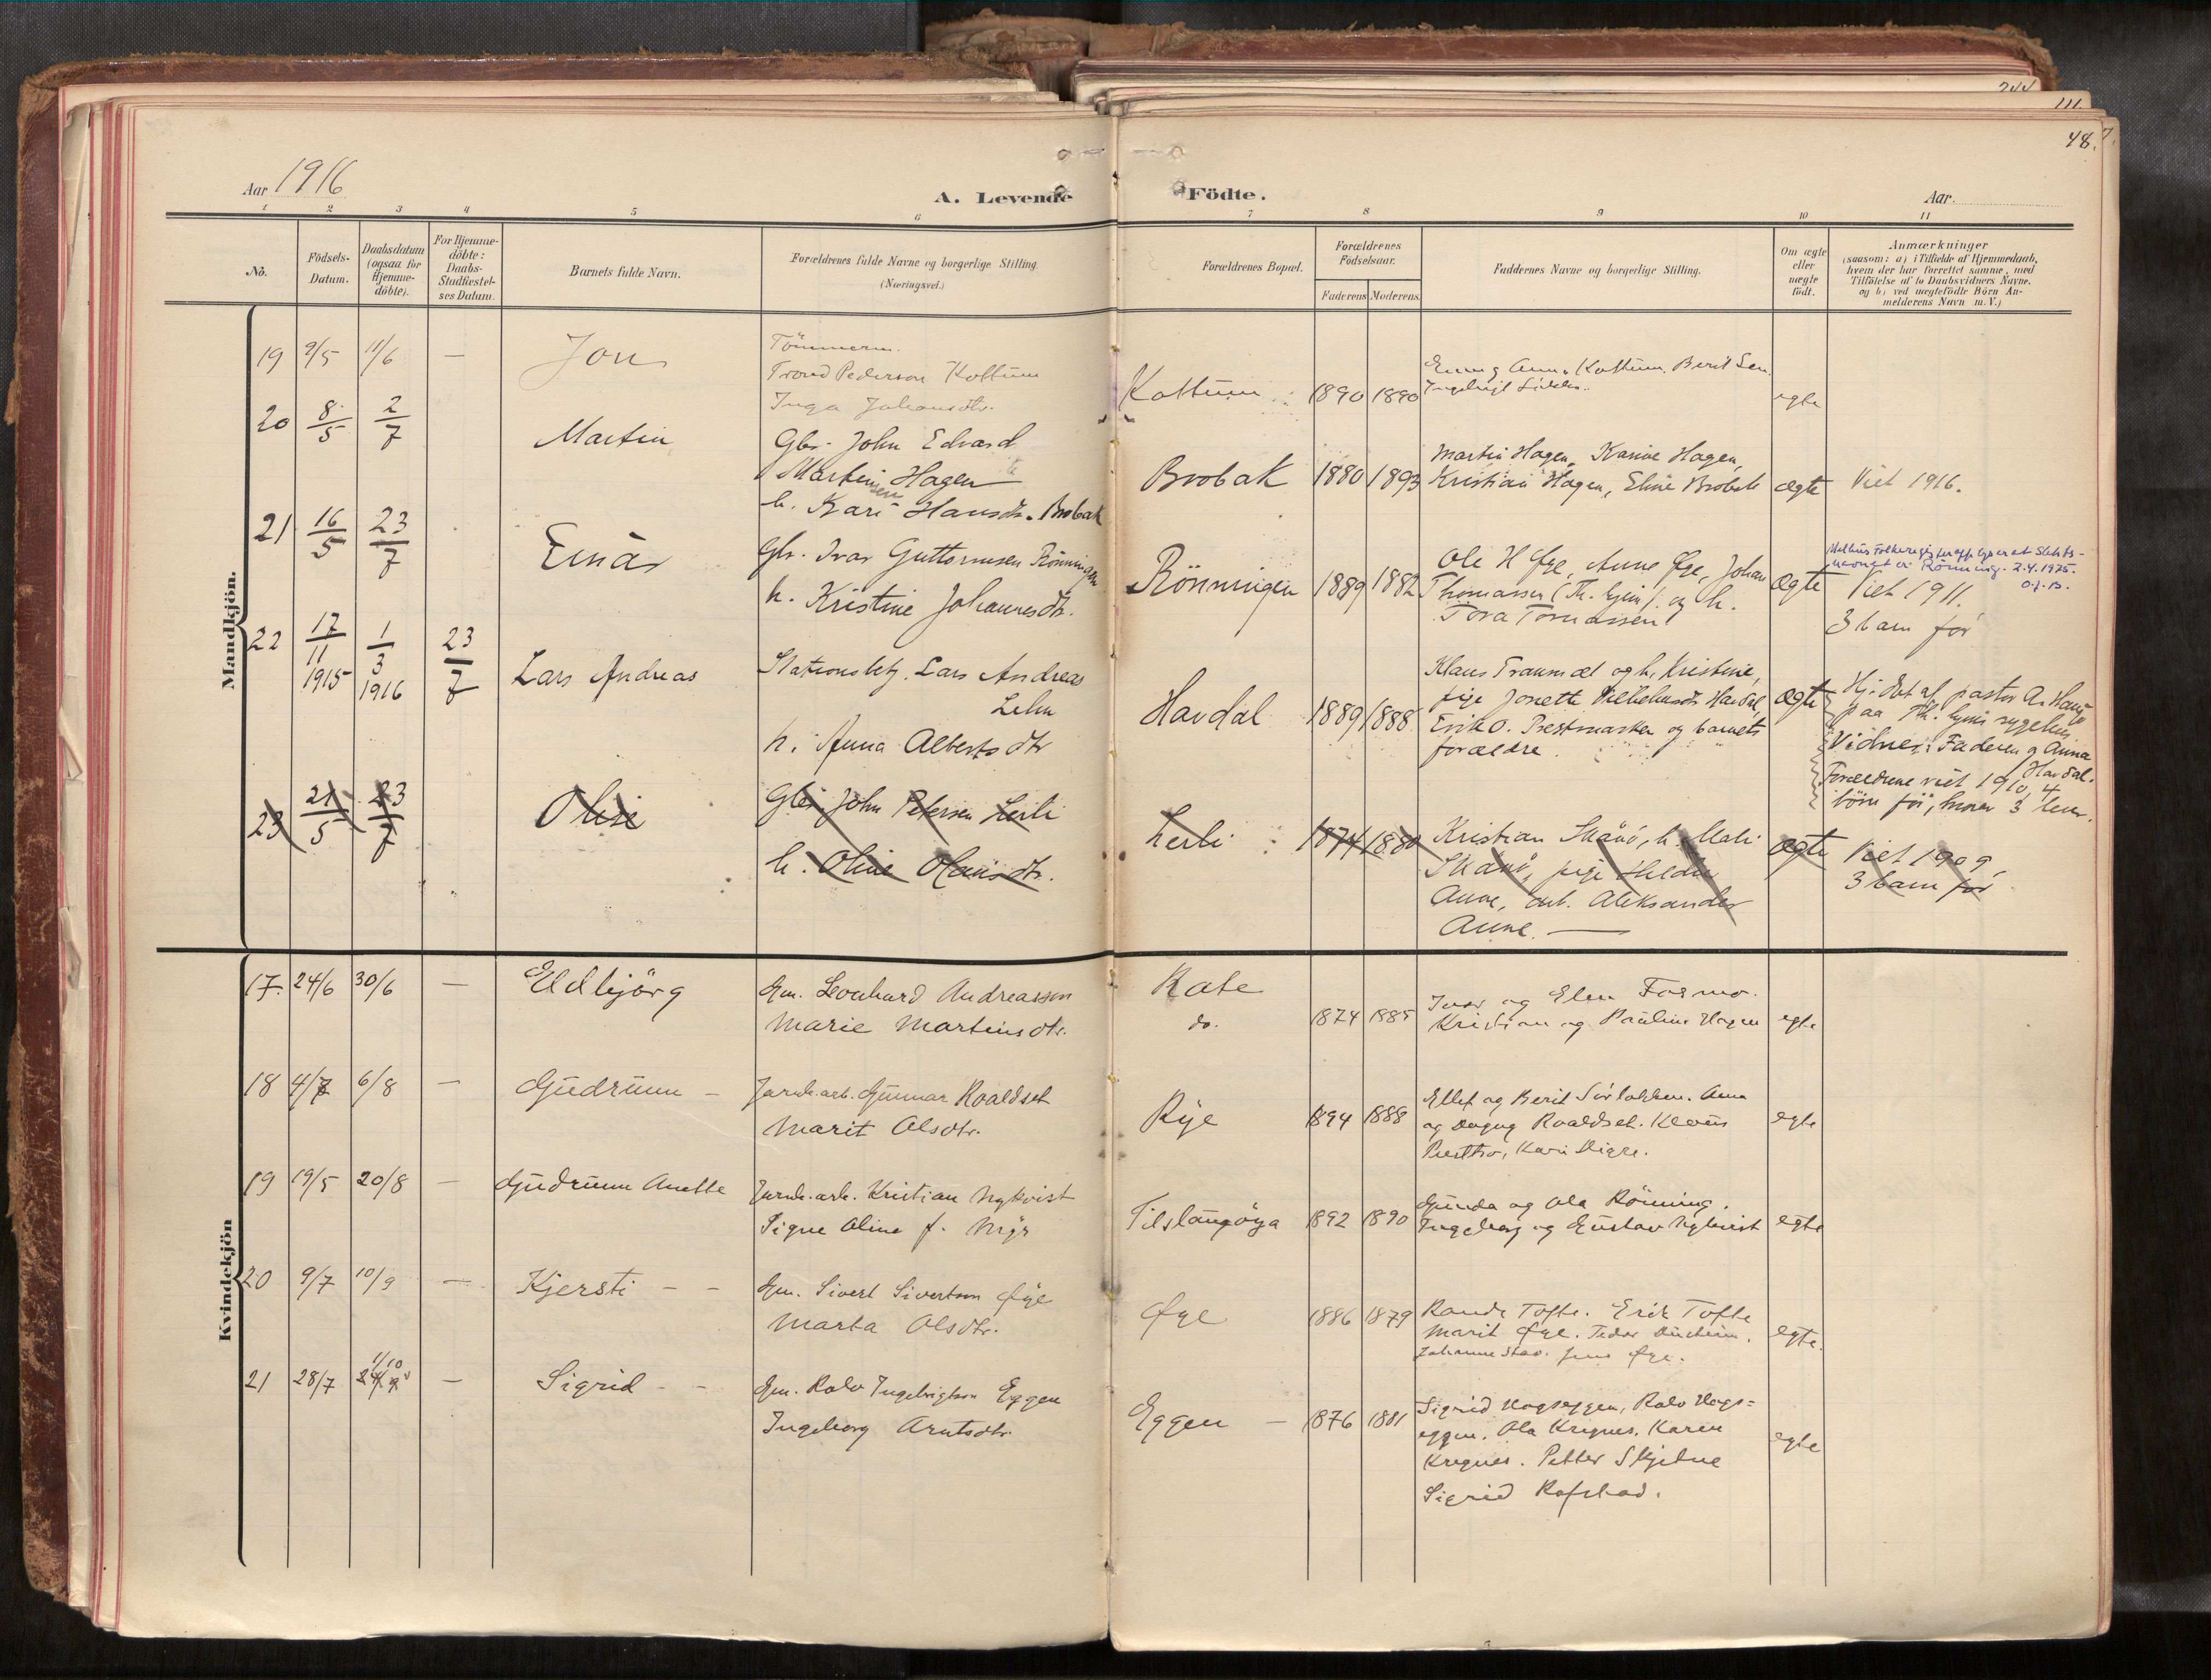 244
111.
48.
Aar 1916
A. Levende Födte.
Aar
1 2 3 4 5 6 7 8 9 10 11
No.
Födsels-
Datum.
Daabsdatum
(ogsaa for
Hjemme-
döbte).
For Hjemme-
döbte:
Daabs-
Stadfæstel-
ses Datum.
Barnets fulde Navn.
Forældrenes fulde Navne og borgerlige Stilling
(Næringsvei.)
Forældrenes Bopæl.
Forældrenes
Födselsaar.
Faderens Moderens
Faddernes Navne og borgerlige Stilling.
Om ægte
eller
uægte
født.
Anmærkninger
(saasom: a) i Tilfælde af Hjemmedaab,
hvem der har forrettet samme, med
Tilföielse af to Daabsvidners Navne.
og b) ved uægtefödte Börn An-
melderens Navn m. V.)
Mandkjön.
19 9/5 11/6 — Jon
Tömmerm.
Trond Pederson Kottum
Inga Johansdtr.
Kottum 1890 1890
Kottum. Berit
egte
20 8/5 2/7 Martin
Gbr. John Edvard
Martinsen Hagen
h. Kari Hansdtr. Brobak
Brobak 1880 1893
Martin Hagen, Karine Hagen,
Kristian Hagen, Eline Brobak
ægte
Viet 1916.
21 16/5 23/7 Einar
Gbr. Ivar Guttormsen Rönningen
h. Kristine Johannesdtr.
Rönningen 1889 1882
Ole H Øye, Anne Øye, Johan
Thomassen (Th. hjem) og h.
Tora Tomassen
ægte
Melhus Folkeregister opplyser at Slekts-
navnet er Rönning. 2.4.1975.
Viet 1911.
3 barn før
22 17/11 1915 1/3 1916 23/7 Lars Andreas
Stationsbetj. Lars Andreas
Lehn
h. Anna Albertsdtr
Havdal 1889 1888
Klaus Tranmæl og h. Kristine,
pige Jonette Havdal,
Erik O. Prestmarken og barnets
forældre.
ægte
Hj. døbt af pastor A.
paa Th.hjems sygehus
Vidner: Faderen og Anna
Havdal.
Forældrene viet 1910, 4
börn för, hvorav 3 lever.
23 21/5 23/7 Olise
Gbr. John Petersen Leerli
h. Oline Olausdtr.
Leerli 1874 1880
Kristian Skånö, h. Mali
Skånö, pige Hilda
Aune, arb. Aleksander
Aune. —
ægte
Viet 1909,
3 barn før
Kvindekjön
17. 24/6 30/6 — Eldbjörg
Gm. Leonhard Andreassen
Marie Martinsdtr.
Kate
do.
1874 1885
Ivar og Elen Formo.
Kristian og Pauline Hagen
egte
18 4/7 6/8 — Gudrunn —
Jarnb.arb. Gunnar Roaldset
Marit Olsdtr.
Rye 1894 1888
Ellef og Berit Sörlökken. Anna
og Dagny Roaldset. Klaus
Presttrø, Kari Digre.
egte
19 19/5 20/8 — Gudrunn Anette
Jarnb.arb. Kristian Nykvist
Signe Oline f. Myr
1892 1890
Gunda og Ola Rönning.
Ingeborg og Gustav Nykvist
egte
20 9/7 10/9 — Kjersti — —
Gm. Sivert Sivertson Øye
Marta Olsdtr.
Øye 1886 1879
Randi Tofte. Erik Tofte
Marit Øye. Peder
Johanne Stav. Jens Øye.
egte.
21 28/7 1/10 — Sigrid — —
Gm. Rolv Ingebrigtson Eggen
Ingeborg Arntsdtr.
Eggen — 1876 1881
Sigrid Hagseggen, Rolv Hags=
eggen. Ola Kregnes. Karen
Kregnes. Petter Skjetne
Sigrid Rofstad.
egte